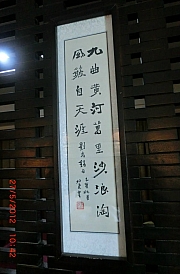 九曲黄河萬里沙浪淘
風簸自天涯 劉禹錫句
27/5/2012 10:42